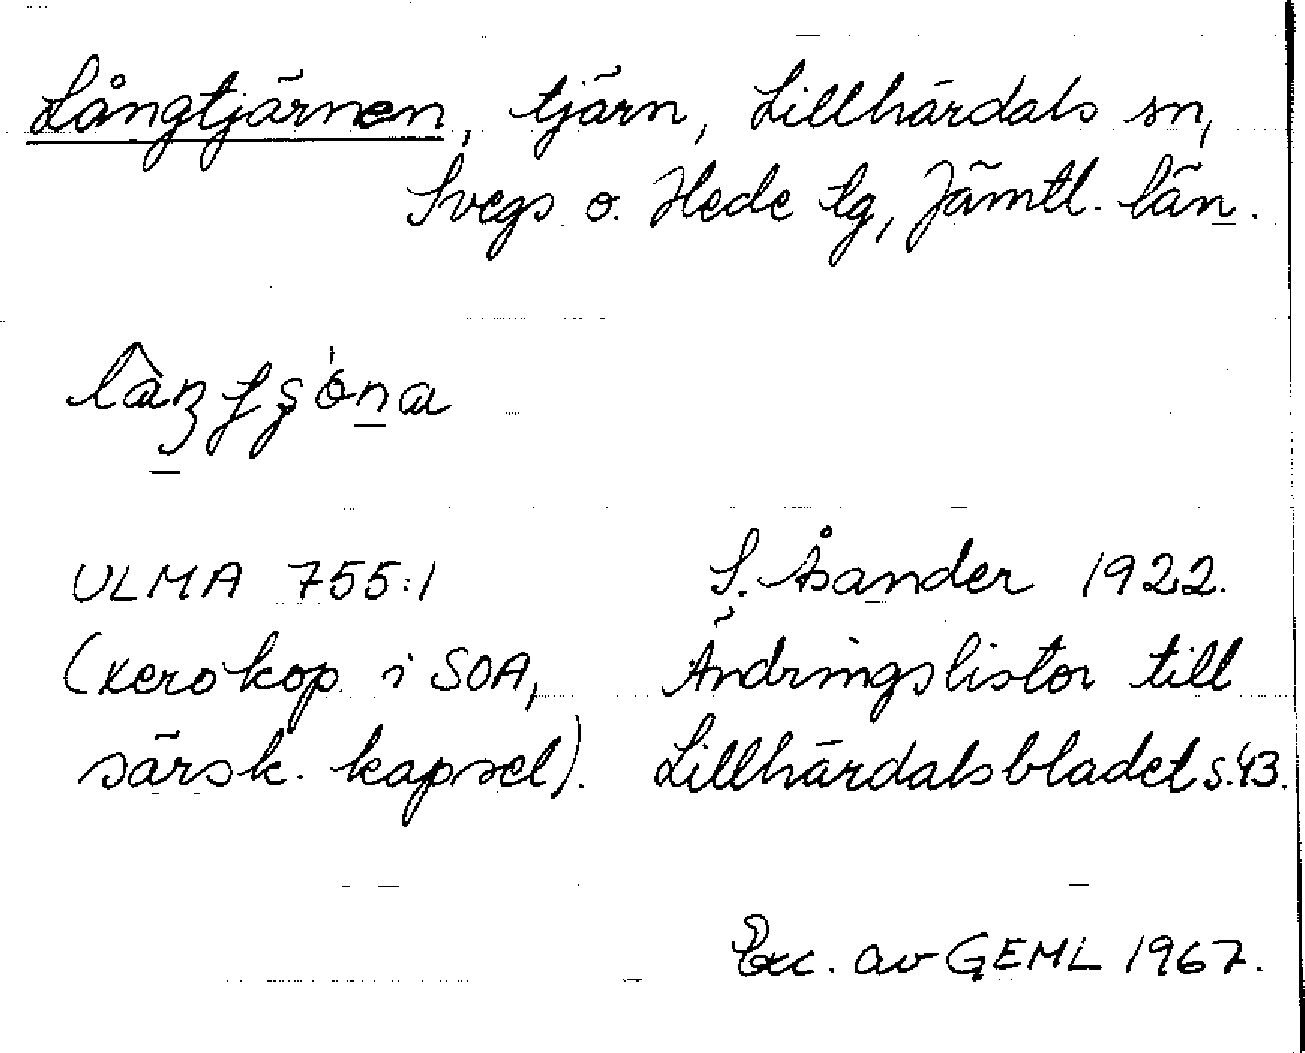 Långtjärnen, tjärn, Lillhärdals sn,
Svegs o. Hede tg, Jämtl. län.
ULMA 755:1
S. Åsander 1922.
(xerokop i SOA,
Ändringslistor till
särsk. kapsel).
Lillhärdalsbladet s. 43.
Exc. av GEML 1967.